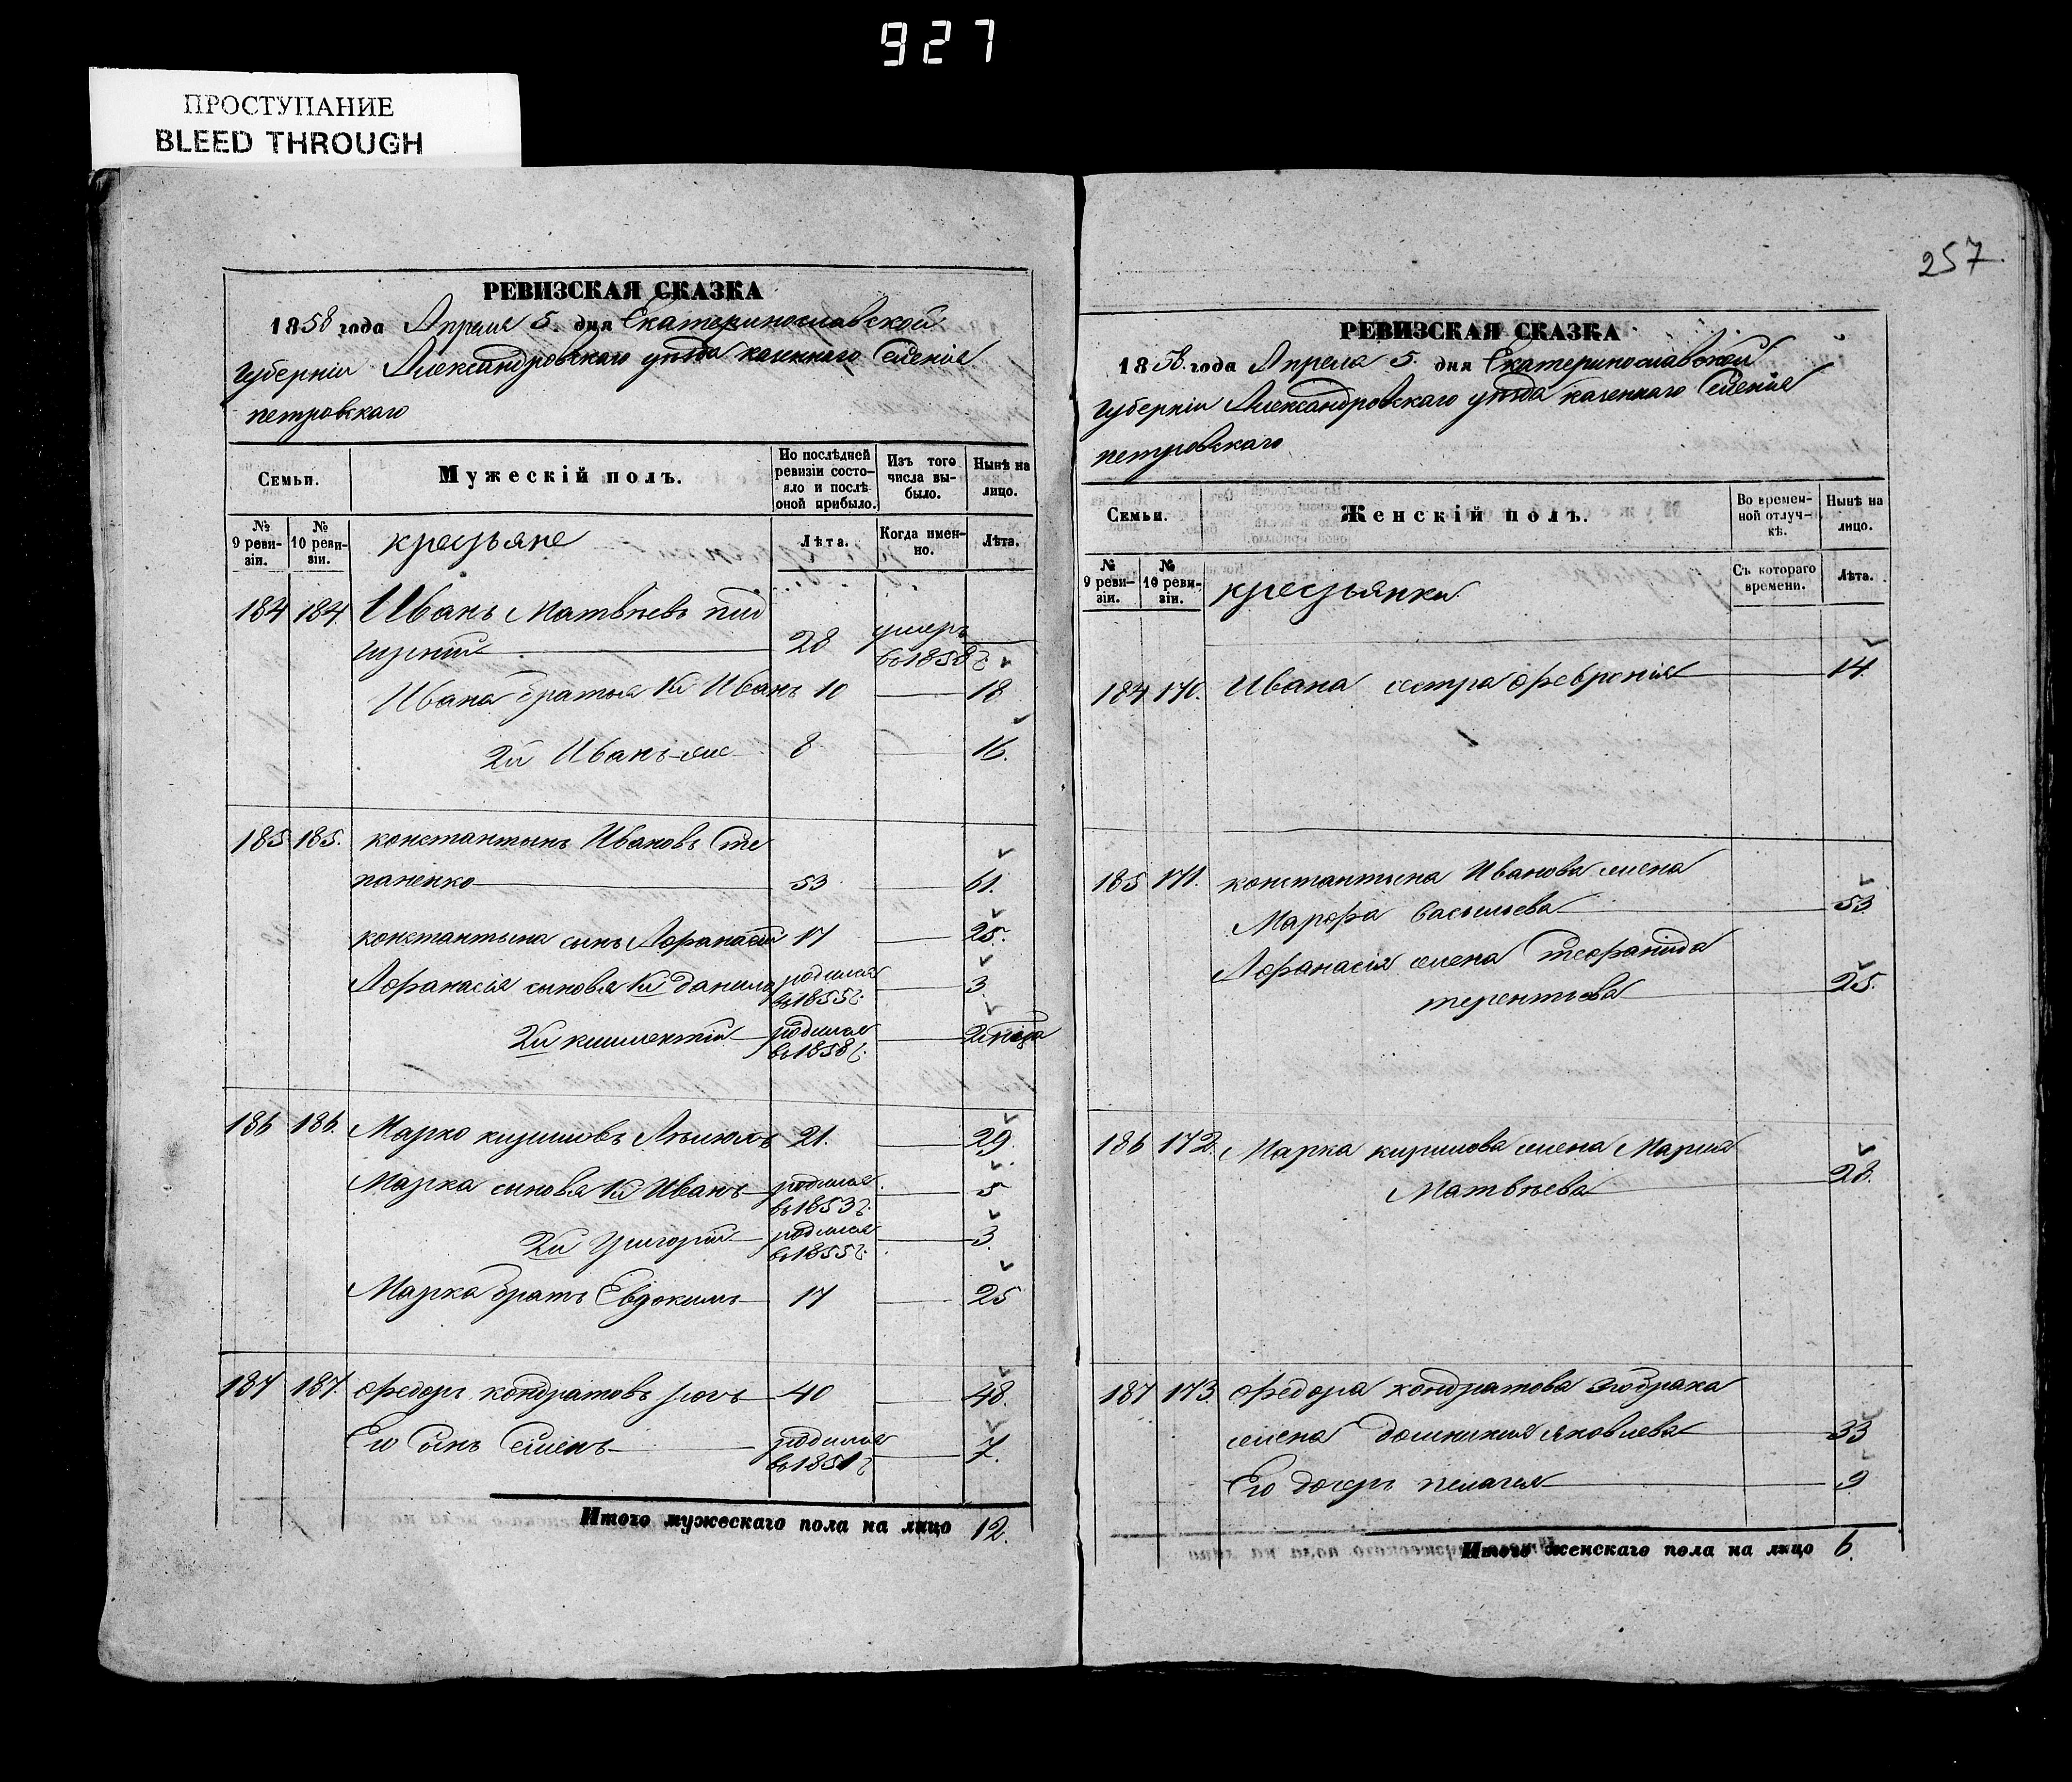 927
ПРОСТУПАНИЕ
BLEED THROUGH
257
РЕВИЗСКАЯ СКАЗКА
1858 года Апреля 5. дня Екатеринославской
Губерніи Александровскаго уѣзда казеннаго Селенія
петровскаго
Семьи.
Мужескій полъ.
По послѣдней ревизіи состояло и послѣ оной прибыло.
Изъ того числа выбыло.
Нынѣ на лицо.
№ 9 ревизіи.
№ 10 ревизіи.
крестьяне
Лѣта.
Когда именно.
Лѣта.
184 184. Иванъ Матвѣевъ
28 умеръ въ 1858 г.
Ивана братья 1й Иванъ 10 18
2й Иванъ же 8 16.
185 185. константинъ Ивановъ Сте
паненко 53 61.
константина сынъ Афанасій 17 25.
Афанасія сыновья 1й данило родился въ 1855 г. 3
2й родился въ 1858 г.
186 186. Марко кириловъ 21. 29.
Марка сыновья 1й Иванъ родился въ 1853 г. 5
2й Григорій родился въ 1855 г. 3.
Марка братъ Евдокимъ 17 25
187 187. Федоръ кондратовъ 40 48.
Его сынъ Семенъ родился въ 1851 г. 7.
Итого мужескаго пола на лицо 12.
РЕВИЗСКАЯ СКАЗКА
1858. года Апреля 5. дня Екатеринославской
Губерніи Александровскаго уѣзда казеннаго Селенія
петровскаго
Семьи.
Женскій полъ.
Во временной отлучкѣ.
Нынѣ на лицо.
№ 9 ревизіи.
№ 10 ревизіи.
крестьянки
Съ котораго времени.
Лѣта.
184 170. Ивана сестра Февронія 14.
185 171. константина Иванова жена
Марфа Васильева 53
Афанасія жена
терентіева 25.
186 172. Марка кирилова жена Марія
Матвѣева 28.
187 173. Федора кондратова
жена Домникия яковлева 33
Его дочерь пелагея 9
Итого женскаго пола на лицо 6.